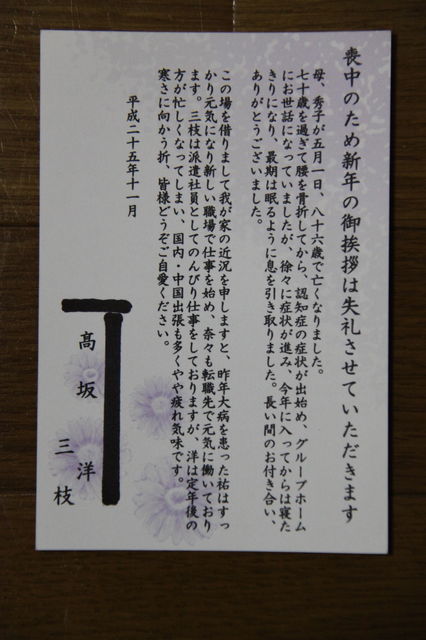 喪中のため新年の御挨拶は失礼させていただきます
母、秀子が五月一日、八十六歳で亡くなりました。
七十歳を過ぎて腰を骨折してから、認知症の症状が出始め、グループホーム
にお世話になっていましたが、徐々に症状が進み、今年に入ってからは寝た
きりになり、最期は眠るように息を引き取りました。長い間のお付き合い、
ありがとうございました。
この場を借りまして我が家の近況を申しますと、昨年大病を患った祐はすっ
かり元気になり新しい職場で仕事を始め、奈々も転職先で元気に働いており
ます。三枝は派遣社員としてのんびり仕事をしておりますが、洋は定年後の
方が忙しくなってしまい、国内・中国出張も多くやや疲れ気味です。
寒さに向かう折、皆様どうぞご自愛ください。
平成二十五年十一月
高坂 洋
三枝